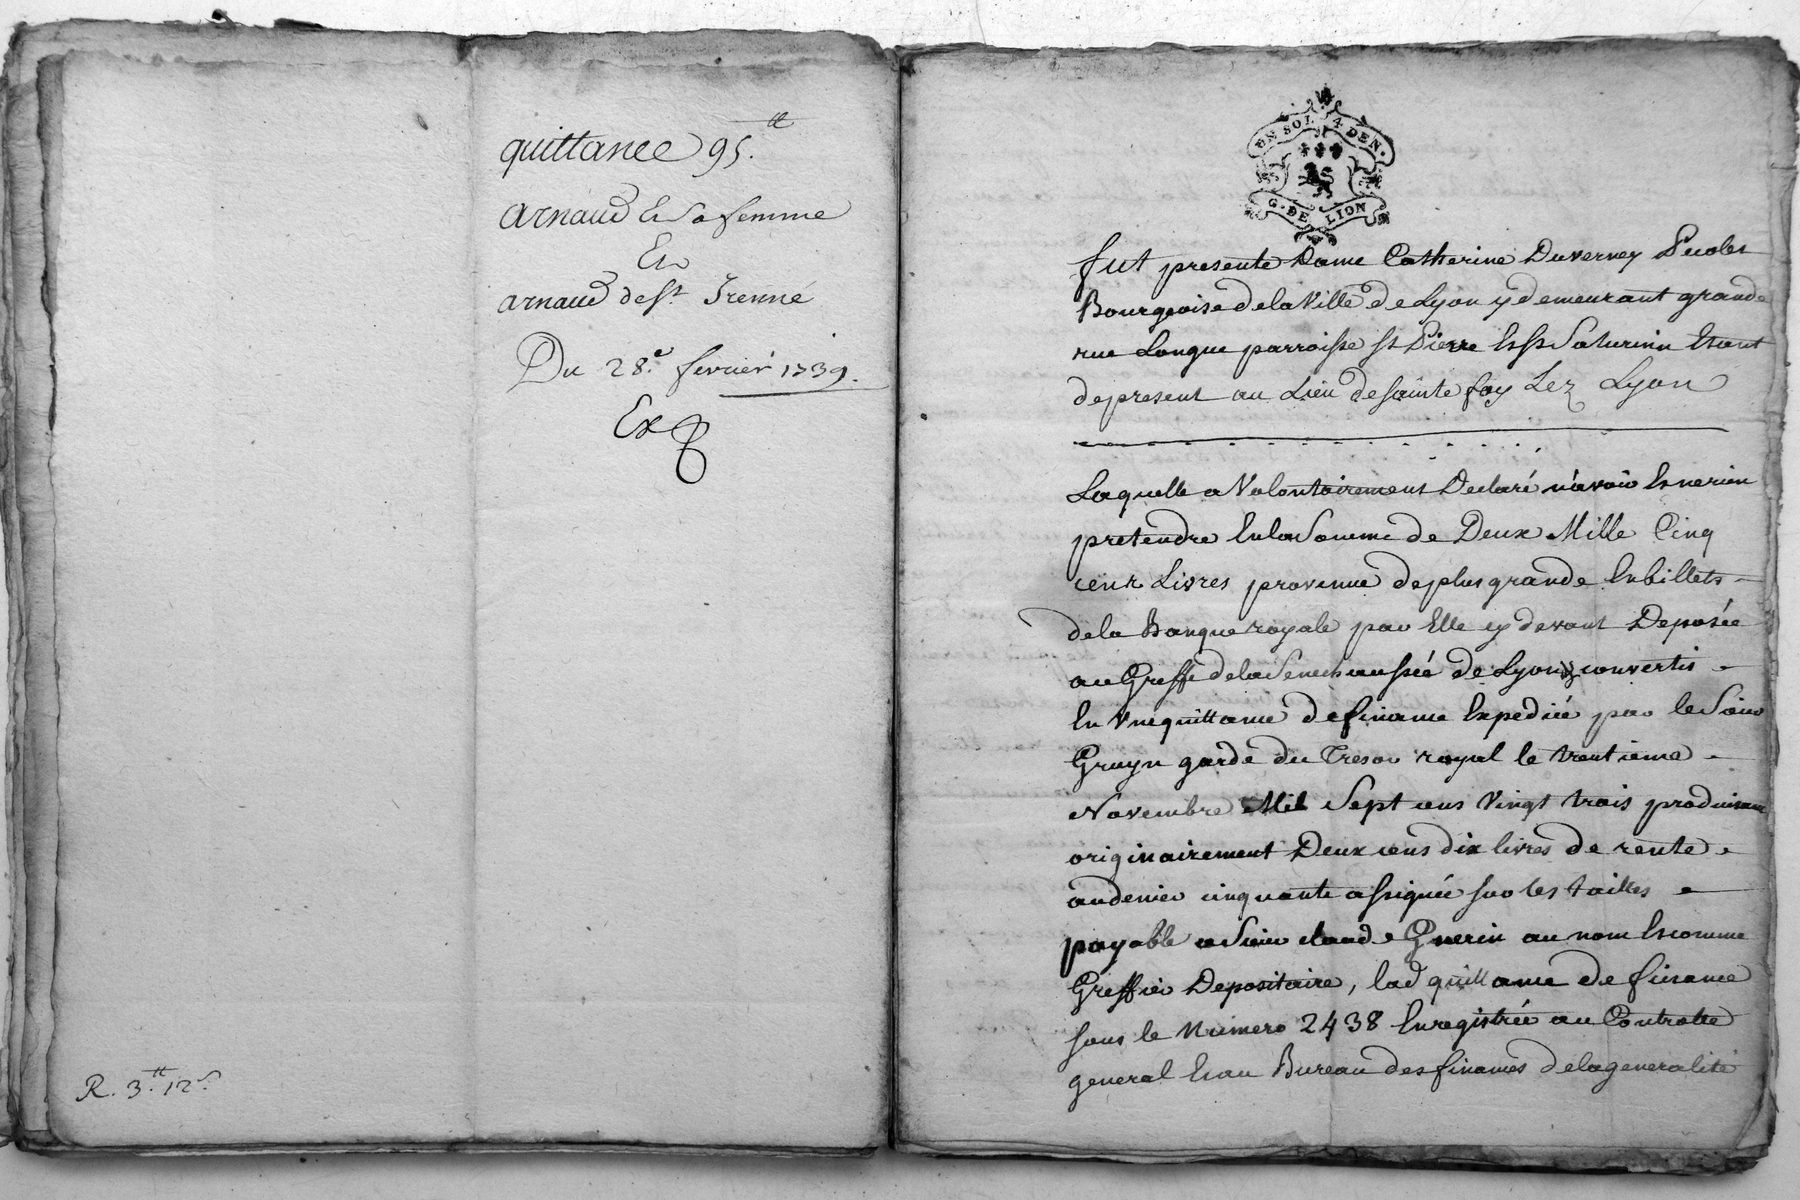 quittance 95.tt
arnaud & sa femme
Et
arnaud de st Irenné
Du 28.e fevrier 1739.
Ex
R. 3.tt 12.s
UN SOL 4 DEN.
G. DE LION
fut presente Dame Catherine Duverney
Bourgeoise de la Ville de Lyon y demeurant grande
rue Longue parroisse st Pierre et st Saturnin Etant
de present au Lieu de sainte foy Lez Lyon
Laquelle a Volontairement Declaré n'avoir et ne rien
pretendre En la Somme de Deux Mille Cinq
cent Livres provenue de plus grande En billets
de la Banque royale par Elle cy devant Deposée
au Greffe de la Senechaussée de Lyon convertis
En Une quittance de finance Expediée par le Sieur
Gruyn garde du Tresor royal le trentieme
Novembre Mil Sept cens Vingt trois produisant
originairement Deux cens dix livres de rente
au denier cinquante assignée sur les tailles
payable a Sieur claude Guerin au nom Et comme
Greffier Depositaire, lad quittance de finance
sous le Numero 2438 Enregistrée au Controlle
general Et au Bureau des finances de la generalité